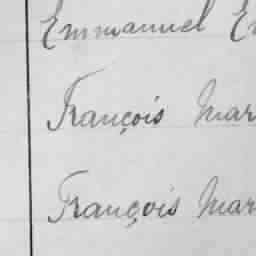 Emmanuel
François Mar
François Mar